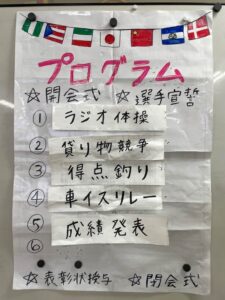 プログラム
☆開会式 ☆選手宣誓
① ラジオ体操
② 貸り物競争
③ 得点釣り
④ 車イスリレー
⑤ 成績発表
⑥
☆表彰状授与 ☆閉会式